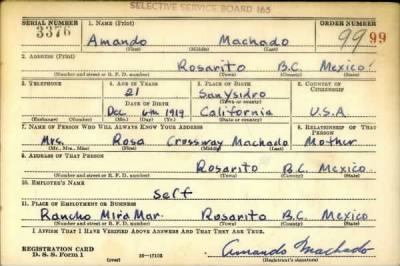 SELECTIVE SERVICE BOARD 165
SERIAL NUMBER 1. NAME (Print) ORDER NUMBER
3376 Amando Machado 9999
(First) (Middle) (Last)
2. ADDRESS (Print)
Rosarito B.C. Mexico
(Number and street or R. F. D. number) (Town) (County) (State)
3. TELEPHONE 4. AGE IN YEARS 5. PLACE OF BIRTH 6. COUNTRY OF CITIZENSHIP
21 San Ysidro
DATE OF BIRTH (Town or county)
Dec. 6th 1919 California U.S.A
(Exchange) (Number) (Mo.) (Day) (Yr.) (State or country)
7. NAME OF PERSON WHO WILL ALWAYS KNOW YOUR ADDRESS 8. RELATIONSHIP OF THAT PERSON
Mrs. Rosa Crossway Machado Mother
(Mr., Mrs., Miss) (First) (Middle) (Last)
9. ADDRESS OF THAT PERSON
Rosarito B.C. Mexico
(Number and street or R. F. D. number) (Town) (County) (State)
10. EMPLOYER'S NAME
Self
11. PLACE OF EMPLOYMENT OR BUSINESS
Rancho Mira Mar. Rosarito B.C. Mexico
(Number and street or R. F. D. number) (Town) (County) (State)
I AFFIRM THAT I HAVE VERIFIED ABOVE ANSWERS AND THAT THEY ARE TRUE.
REGISTRATION CARD
D. S. S. Form 1 (over) 16—17105 Amando Machado